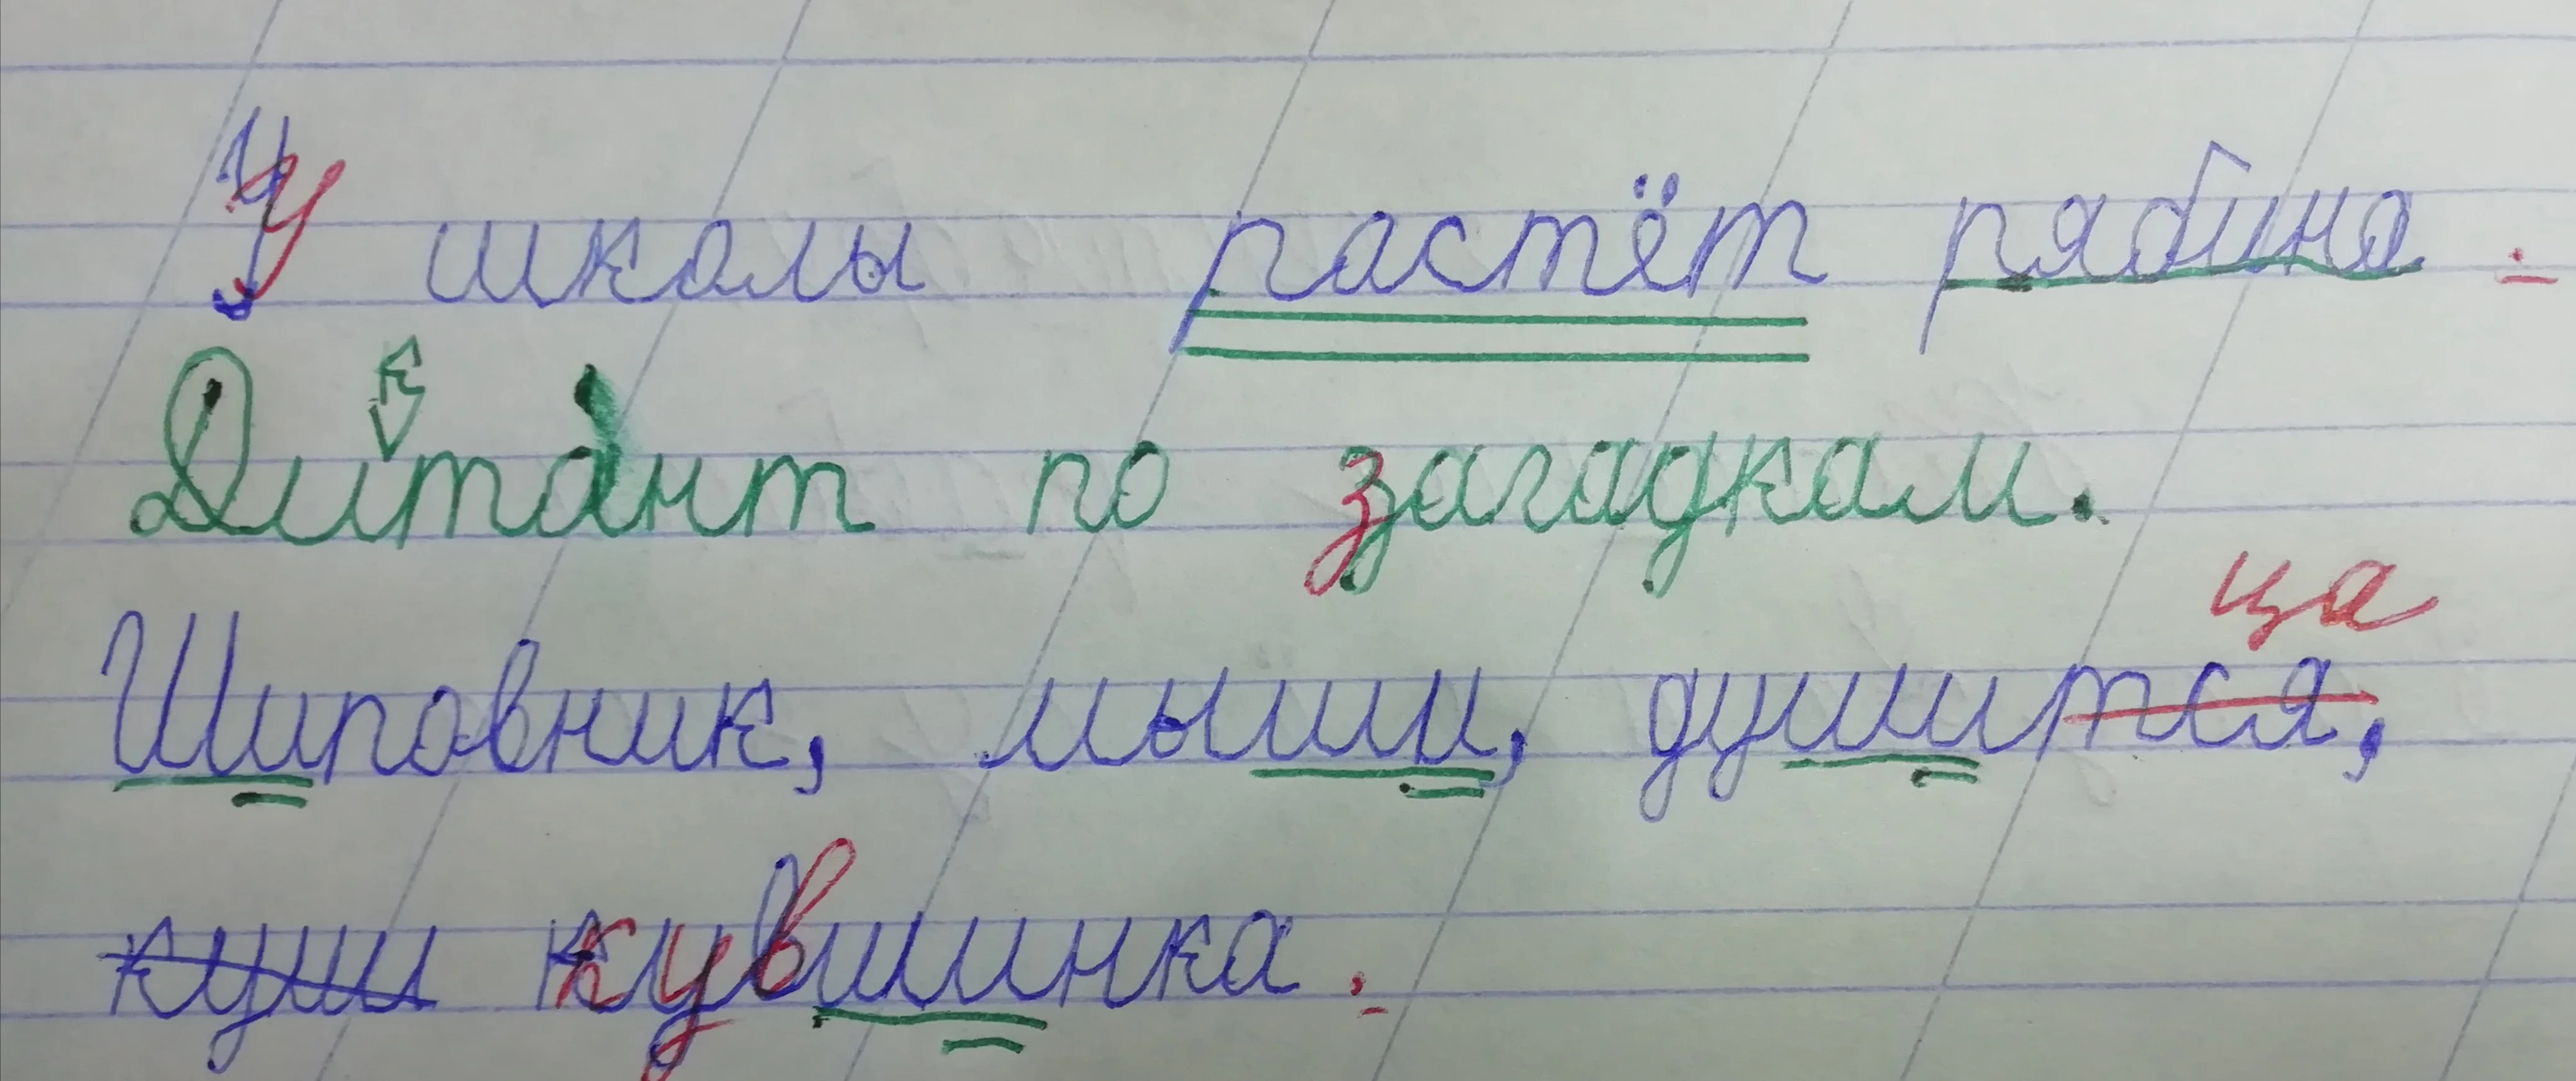 У школы растёт рябина.
Диктант по загадкам.
ца
Шиповник, мыши, душится,
куш кувшинка.